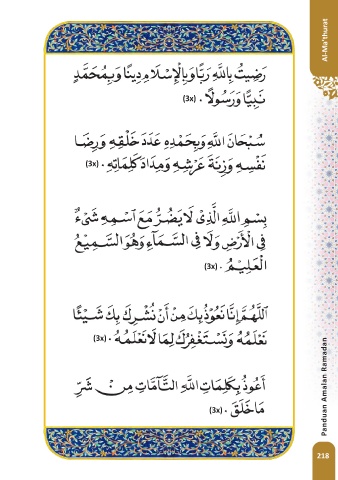 Al-Ma'thurat
رَضِيتُ بِاللَّهِ رَبًّا وَبِالْإِسْلَامِ دِينًا وَبِمُحَمَّدٍ
نَبِيًّا وَرَسُولًا. (3x)
سُبْحَانَ اللَّهِ وَبِحَمْدِهِ عَدَدَ خَلْقِهِ وَرِضَا
نَفْسِهِ وَزِنَةَ عَرْشِهِ وَمِدَادَ كَلِمَاتِهِ. (3x)
بِسْمِ اللَّهِ الَّذِي لَا يَضُرُّ مَعَ اسْمِهِ شَيْءٌ
فِي الْأَرْضِ وَلَا فِي السَّمَاءِ وَهُوَ السَّمِيعُ
الْعَلِيمُ. (3x)
اَللَّهُمَّ إِنَّا نَعُوذُ بِكَ مِنْ أَنْ نُشْرِكَ بِكَ شَيْئًا
نَعْلَمُهُ وَنَسْتَغْفِرُكَ لِمَا لَا نَعْلَمُهُ. (3x)
أَعُوذُ بِكَلِمَاتِ اللَّهِ التَّآمَّاتِ مِنْ شَرِّ
مَا خَلَقَ. (3x)
Panduan Amalan Ramadan
218